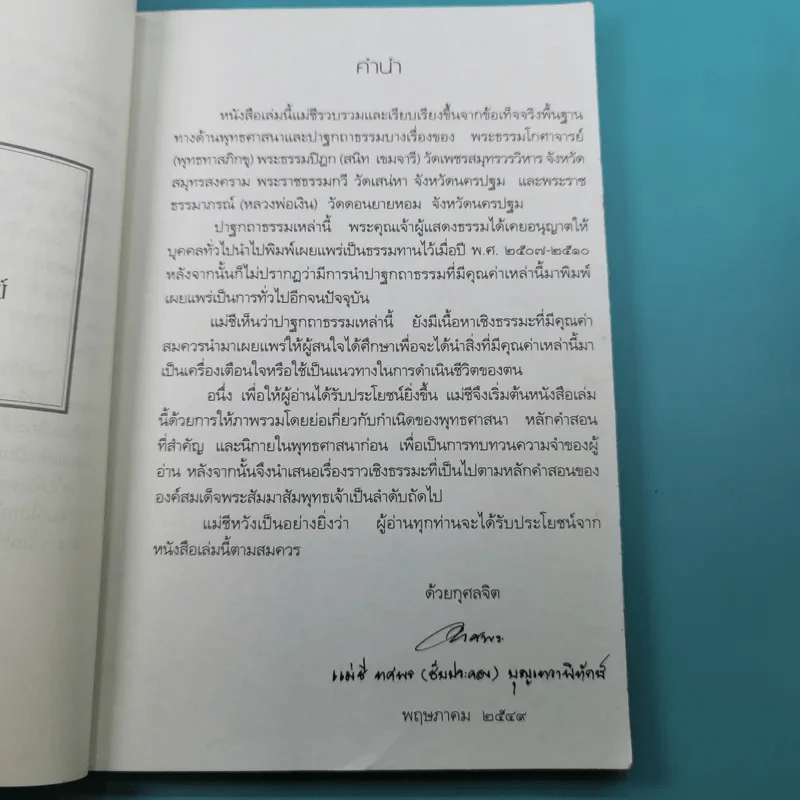 คำนำ
หนังสือเล่มนี้แม่ชีรวบรวมและเรียบเรียงขึ้นจากข้อเท็จจริงพื้นฐาน
ทางด้านพุทธศาสนาและปาฐกถาธรรมบางเรื่องของ พระธรรมโกศาจารย์
(พุทธทาสภิกขุ) พระธรรมปิฎก (สนิท เขมจารี) วัดเพชรสมุทรวรวิหาร จังหวัด
สมุทรสงคราม พระราชธรรมกวี วัดเสน่หา จังหวัดนครปฐม และพระราช
ธรรมาภรณ์ (หลวงพ่อเงิน) วัดดอนยายหอม จังหวัดนครปฐม
ปาฐกถาธรรมเหล่านี้ พระคุณเจ้าผู้แสดงธรรมได้เคยอนุญาตให้
บุคคลทั่วไปนำไปพิมพ์เผยแพร่เป็นธรรมทานไว้เมื่อปี พ.ศ. ๒๕๐๗-๒๕๑๐
หลังจากนั้นก็ไม่ปรากฏว่ามีการนำปาฐกถาธรรมที่มีคุณค่าเหล่านี้มาพิมพ์
เผยแพร่เป็นการทั่วไปอีกจนปัจจุบัน
แม่ชีเห็นว่าปาฐกถาธรรมเหล่านี้ ยังมีเนื้อหาเชิงธรรมะที่มีคุณค่า
สมควรนำมาเผยแพร่ให้ผู้สนใจได้ศึกษาเพื่อจะได้นำสิ่งที่มีคุณค่าเหล่านี้มา
เป็นเครื่องเตือนใจหรือใช้เป็นแนวทางในการดำเนินชีวิตของตน
อนึ่ง เพื่อให้ผู้อ่านได้รับประโยชน์ยิ่งขึ้น แม่ชีจึงเริ่มต้นหนังสือเล่ม
นี้ด้วยการให้ภาพรวมโดยย่อเกี่ยวกับกำเนิดของพุทธศาสนา หลักคำสอน
ที่สำคัญ และนิกายในพุทธศาสนาก่อน เพื่อเป็นการทบทวนความจำของผู้
อ่าน หลังจากนั้นจึงนำเสนอเรื่องราวเชิงธรรมะที่เป็นไปตามหลักคำสอนของ
องค์สมเด็จพระสัมมาสัมพุทธเจ้าเป็นลำดับถัดไป
แม่ชีหวังเป็นอย่างยิ่งว่า ผู้อ่านทุกท่านจะได้รับประโยชน์จาก
หนังสือเล่มนี้ตามสมควร
ด้วยกุศลจิต
ทศพร
แม่ชี ทศพร
พฤษภาคม ๒๕๔๙